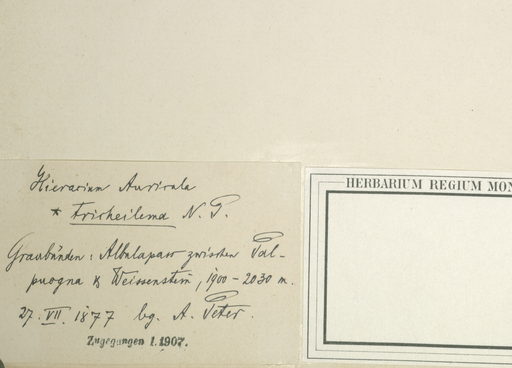 Hieracium Auricula
* Tricheilema N. P.
Graubünden: Albulapass zwischen Pal-
puogna & Weissenstein, 1900-2030 m.
27. VII. 1877 lg. A. Peter.
Zugegangen 1.1907.
HERBARIUM REGIUM MON